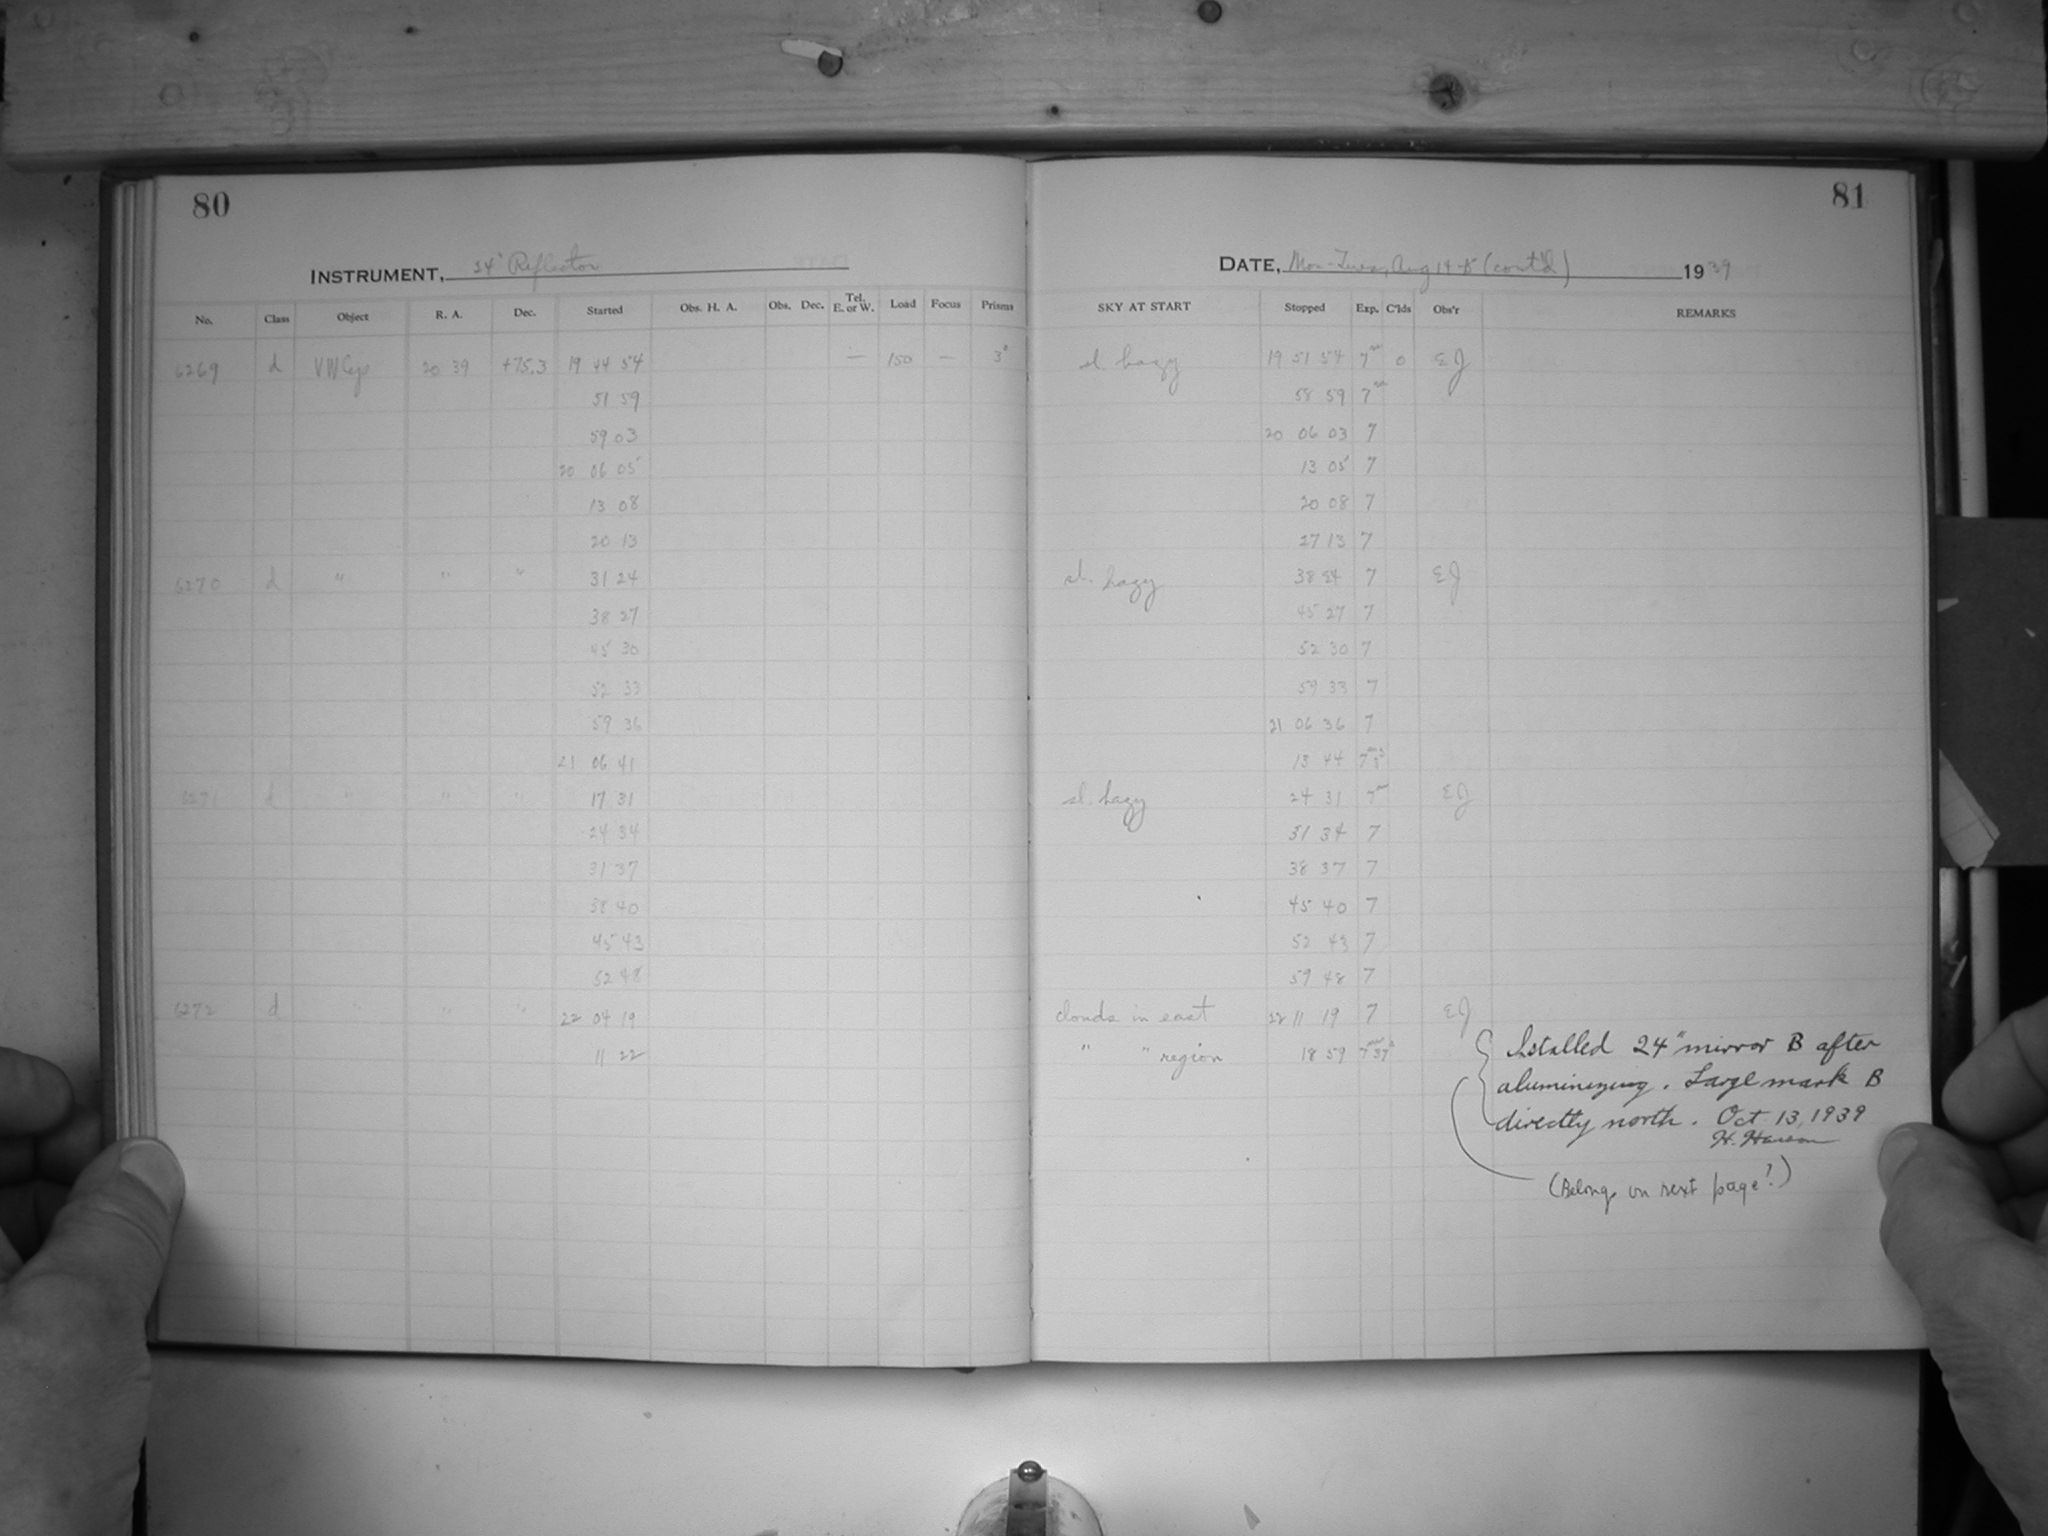 80
INSTRUMENT, 24" Reflector
No. Class Object R. A. Dec. Started Obs. H. A. Obs. Dec. Tel. E. or W. Load Focus Prisms
6269 d VW Cep 20 39 +75.3 19 44 54 — 150 — 3°
51 59
59 03
20 06 05
13 08
20 13
6270 d " " " 31 24
38 27
45 30
52 33
59 36
21 06 41
6271 d " " " 17 31
24 34
31 37
38 40
45 43
52 48
6272 d " " " 22 04 19
11 22
81
DATE, Mon-Tues, Aug 14-15 (cont'd) 1939
SKY AT START Stopped Exp. C'lds Obs'r REMARKS
sl. hazy 19 51 54 7m 0 EJ
58 59 7m
20 06 03 7
13 05 7
20 08 7
27 13 7
sl. hazy 38 24 7 EJ
45 27 7
52 30 7
59 33 7
21 06 36 7
13 44 7m 3s
sl. hazy 24 31 7m EJ
31 34 7
38 37 7
45 40 7
52 43 7
59 48 7
clouds in east 22 11 19 7 EJ
" " region 18 59 7m 37s
Installed 24" mirror B after
aluminizing. Large mark B
directly north. Oct 13, 1939
H. Hanson
(Belongs on next page?)